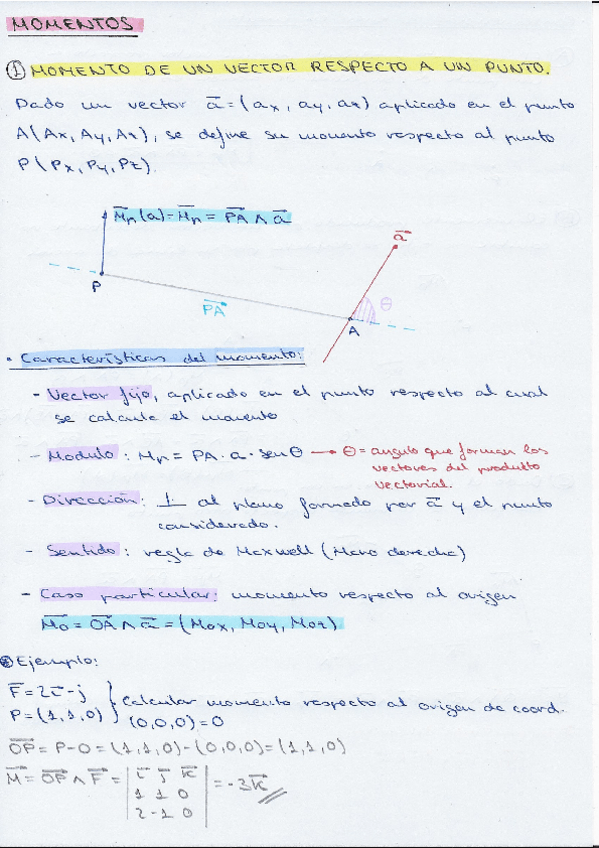 MOMENTOS
① MOMENTO DE UN VECTOR RESPECTO A UN PUNTO.
Dado un vector a⃗ = (ax, ay, az) aplicado en el punto
A(Ax, Ay, Az), se define su momento respecto al punto
P(Px, Py, Pz).
M⃗p(a) = M⃗p = PA⃗ ∧ a⃗
a⃗
P
PA⃗
θ
A
· Características del momento:
- Vector fijo, aplicado en el punto respecto al cual
se calcula el momento
- Modulo: Mp = PA · a · senθ → θ = angulo que forman los
vectores del produtto
vectorial.
- Dirección: ⊥ al plano formado por a⃗ y el punto
considerado.
- Sentido: regla de Maxwell (Mano derecha)
- Caso particular: momento respecto al origen
M⃗o = OA⃗ ∧ a⃗ = (Mox, Moy, Moz)
Ejemplo:
F⃗ = 2i⃗ - j } Calcular momento respecto al origen de coord.
P = (1,1,0) } (0,0,0) = 0
OP⃗ = P-O = (1,1,0) - (0,0,0) = (1,1,0)
M⃗ = OP⃗ ∧ F⃗ = | i⃗ j⃗ k⃗ | = -3k⃗
1 1 0
2 -1 0